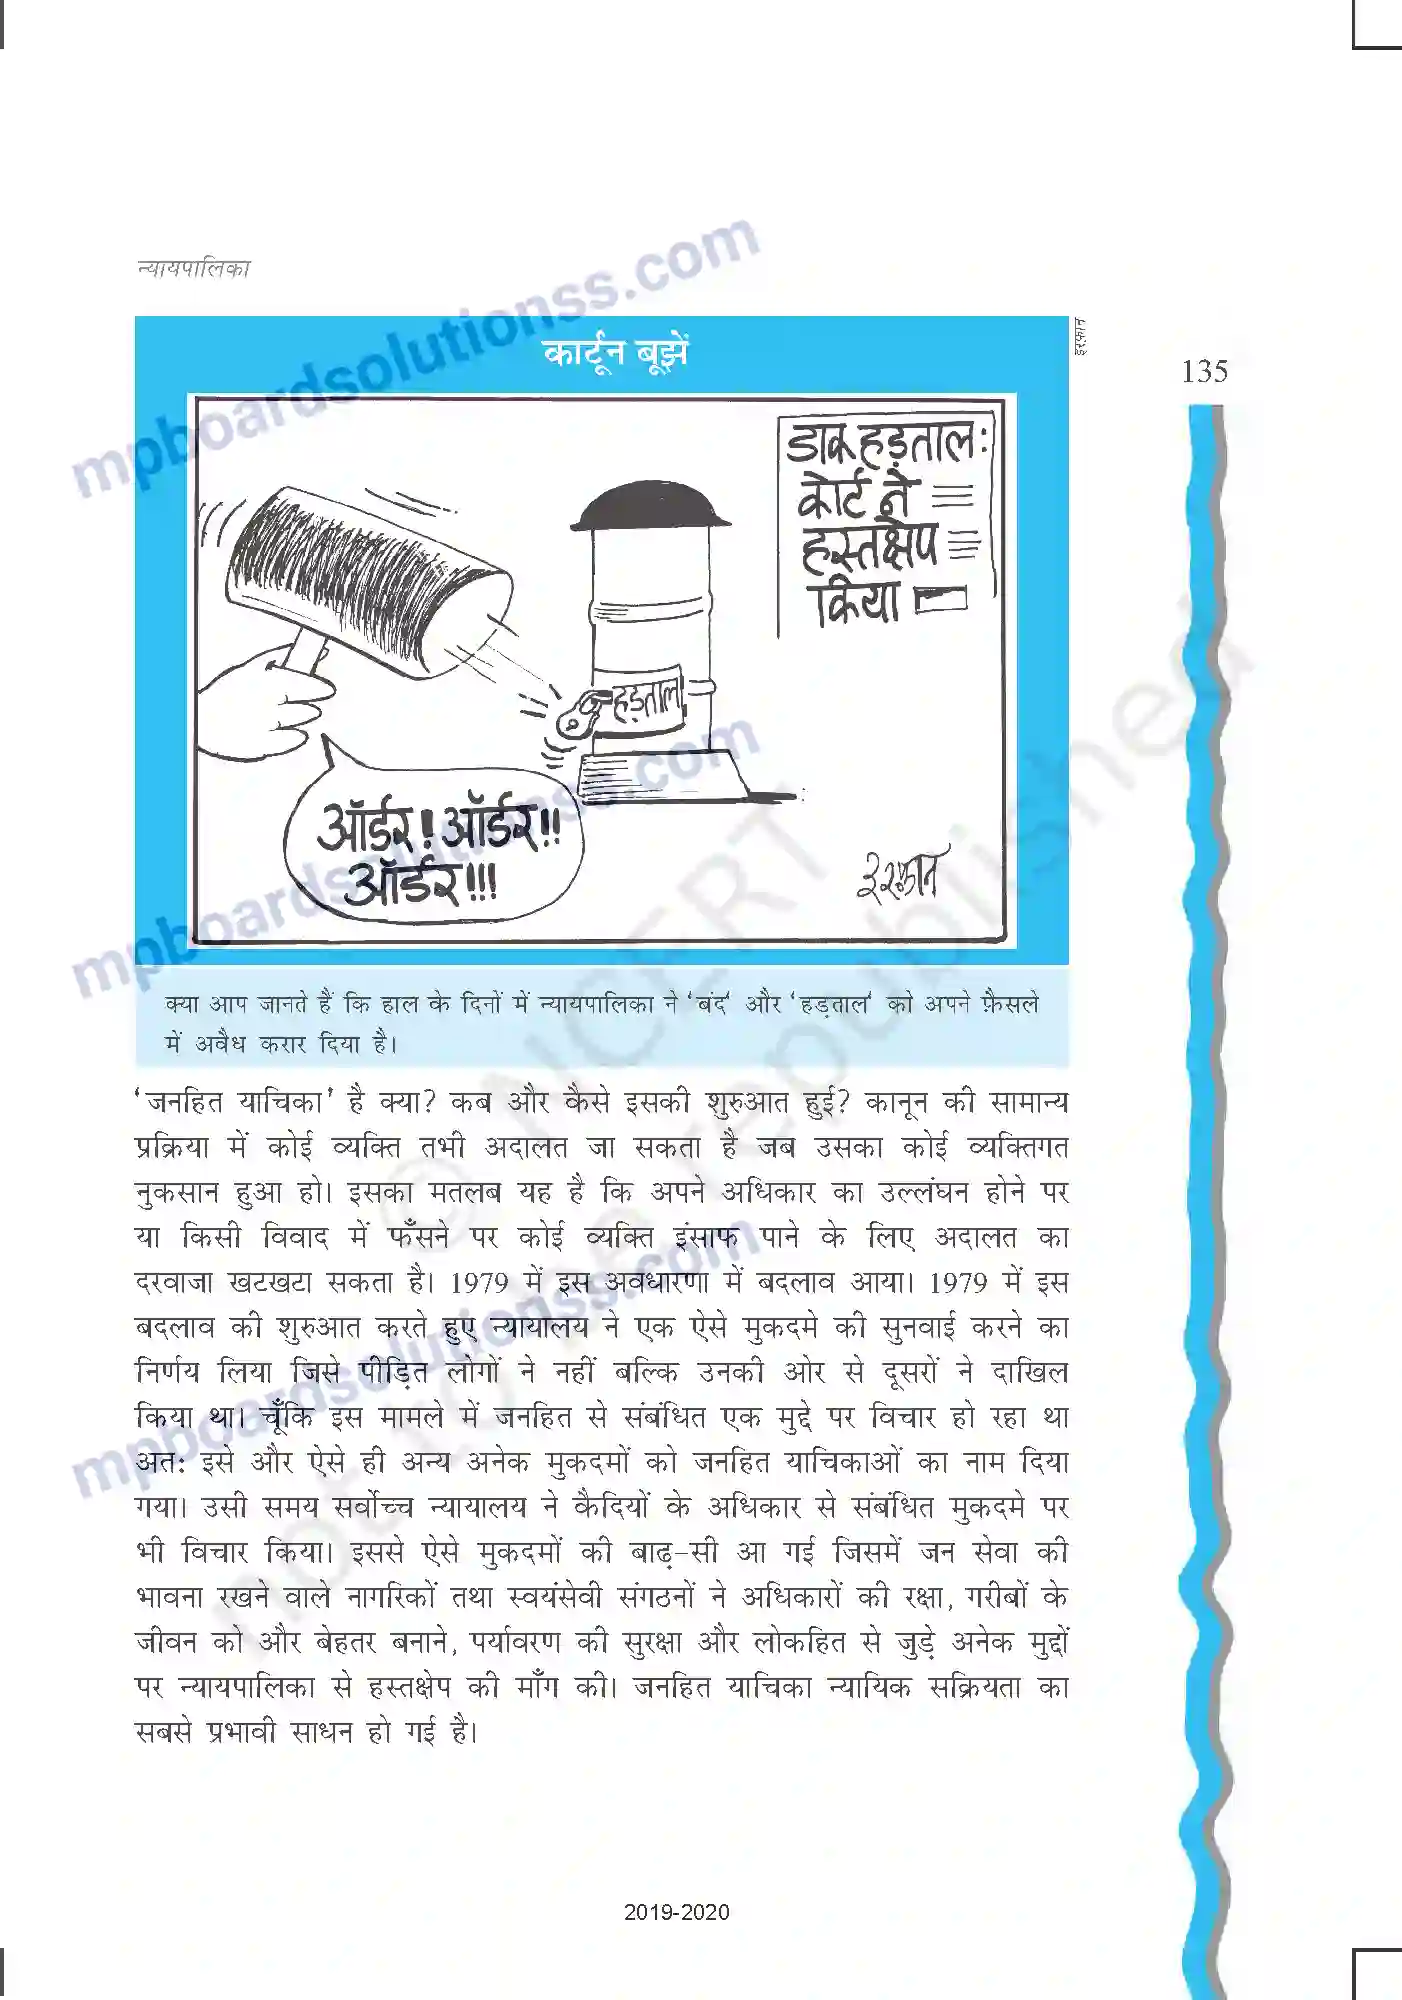 न्यायपालिका
कार्टून बूझें
इरफ़ान
135
डाक हड़ताल:
कोर्ट ने
हस्तक्षेप
किया
हड़ताल
ऑर्डर! ऑर्डर!!
ऑर्डर!!!
इरफ़ान
क्या आप जानते हैं कि हाल के दिनों में न्यायपालिका ने 'बंद' और 'हड़ताल' को अपने फ़ैसले
में अवैध करार दिया है।
'जनहित याचिका' है क्या? कब और कैसे इसकी शुरुआत हुई? कानून की सामान्य
प्रक्रिया में कोई व्यक्ति तभी अदालत जा सकता है जब उसका कोई व्यक्तिगत
नुकसान हुआ हो। इसका मतलब यह है कि अपने अधिकार का उल्लंघन होने पर
या किसी विवाद में फँसने पर कोई व्यक्ति इंसाफ पाने के लिए अदालत का
दरवाजा खटखटा सकता है। 1979 में इस अवधारणा में बदलाव आया। 1979 में इस
बदलाव की शुरुआत करते हुए न्यायालय ने एक ऐसे मुकदमे की सुनवाई करने का
निर्णय लिया जिसे पीड़ित लोगों ने नहीं बल्कि उनकी ओर से दूसरों ने दाखिल
किया था। चूँकि इस मामले में जनहित से संबंधित एक मुद्दे पर विचार हो रहा था
अत: इसे और ऐसे ही अन्य अनेक मुकदमों को जनहित याचिकाओं का नाम दिया
गया। उसी समय सर्वोच्च न्यायालय ने कैदियों के अधिकार से संबंधित मुकदमे पर
भी विचार किया। इससे ऐसे मुकदमों की बाढ़-सी आ गई जिसमें जन सेवा की
भावना रखने वाले नागरिकों तथा स्वयंसेवी संगठनों ने अधिकारों की रक्षा, गरीबों के
जीवन को और बेहतर बनाने, पर्यावरण की सुरक्षा और लोकहित से जुड़े अनेक मुद्दों
पर न्यायपालिका से हस्तक्षेप की माँग की। जनहित याचिका न्यायिक सक्रियता का
सबसे प्रभावी साधन हो गई है।
2019-2020
mpboardsolutionss.com
mpboardsolutionss.com
mpboardsolutionss.com
© NCERT
not to be republished